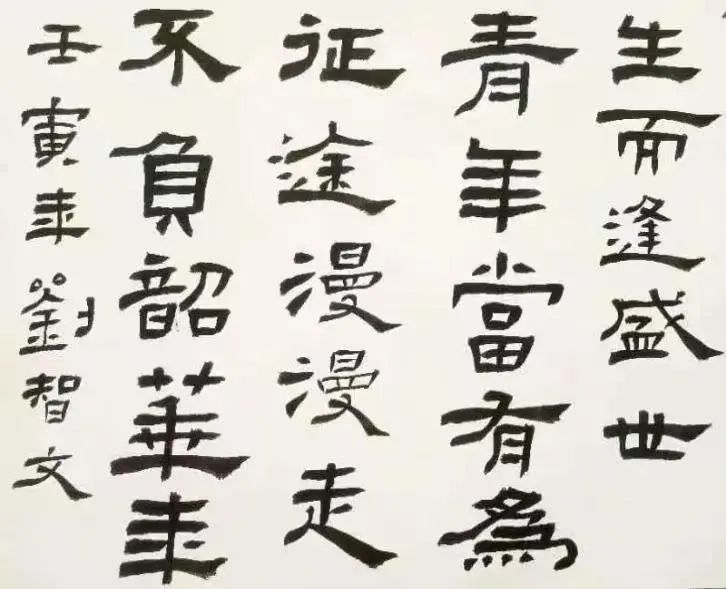 生而逢盛世
青年當有為
征途漫漫走
不負韶華年
壬寅年劉智文